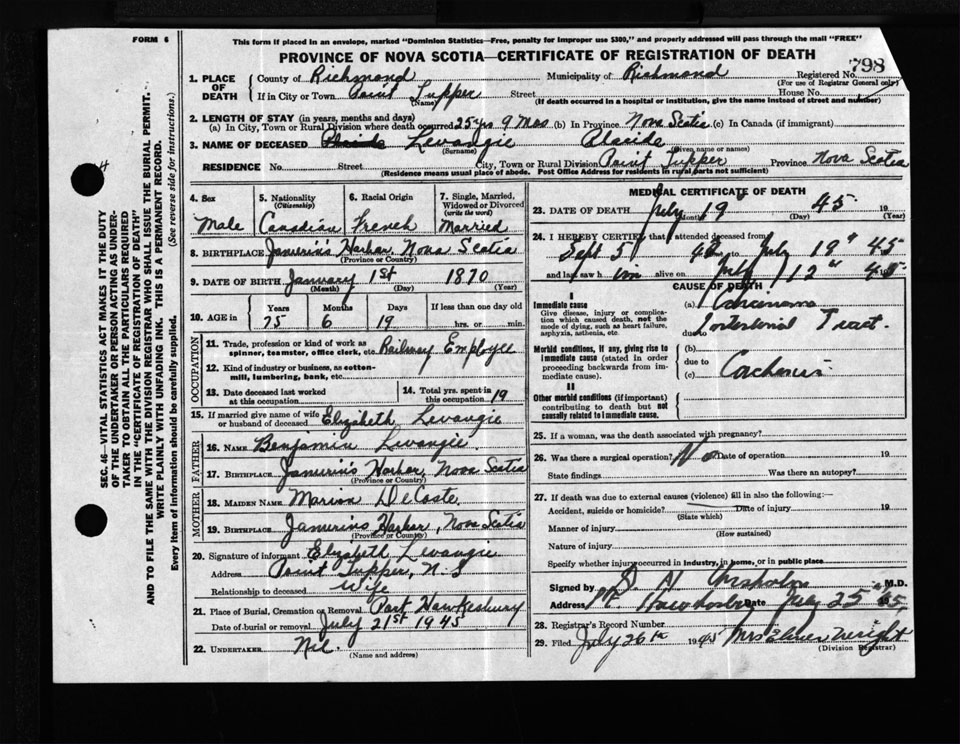 FORM 6
This form if placed in an envelope, marked "Dominion Statistics—Free, penalty for improper use $300," and properly addressed will pass through the mail "FREE"
PROVINCE OF NOVA SCOTIA—CERTIFICATE OF REGISTRATION OF DEATH
798
1. PLACE OF DEATH County of Richmond Municipality of Richmond Registered No.
(For use of Registrar General only)
If in City or Town Point Tupper Street House No.
(Name) (If death occurred in a hospital or institution, give the name instead of street and number)
2. LENGTH OF STAY (in years, months and days)
(a) In City, Town or Rural Division where death occurred 25 yrs 9 Mos (b) In Province Nova Scotia (c) In Canada (if immigrant)
3. NAME OF DECEASED Levangie Placide
(Surname) (Given name or names)
RESIDENCE No. Street City, Town or Rural Division Point Tupper Province Nova Scotia
(Residence means usual place of abode. Post Office Address for residents in rural parts not sufficient)
4. Sex 5. Nationality (Citizenship) 6. Racial Origin 7. Single, Married, Widowed or Divorced (write the word)
Male Canadian French Married
8. BIRTHPLACE Janvrin's Harbor, Nova Scotia
(Province or Country)
9. DATE OF BIRTH January 1st 1870
(Month) (Day) (Year)
10. AGE in Years Months Days If less than one day old
75 6 19 hrs. or min.
OCCUPATION
11. Trade, profession or kind of work as spinner, teamster, office clerk, etc. Railway Employee
12. Kind of industry or business, as cotton-mill, lumbering, bank, etc.
13. Date deceased last worked at this occupation 14. Total yrs. spent in this occupation 19
15. If married give name of wife or husband of deceased Elizabeth Levangie
FATHER
16. NAME Benjamin Levangie
17. BIRTHPLACE Janvrin's Harbor, Nova Scotia
(Province or Country)
MOTHER
18. MAIDEN NAME Marion DeCoste
19. BIRTHPLACE Janvrins Harbor, Nova Scotia
(Province or Country)
20. Signature of informant Elizabeth Levangie
Address Point Tupper, N.S
Relationship to deceased Wife
21. Place of Burial, Cremation or Removal Port Hawkesbury
Date of burial or removal July 21st 1945
22. UNDERTAKER Nil.
(Name and address)
MEDICAL CERTIFICATE OF DEATH
23. DATE OF DEATH July 19 45 19
(Day) (Year)
24. I HEREBY CERTIFY that I attended deceased from
Sept 5 to July 19" 45
and last saw him alive on July 12" 45
CAUSE OF DEATH
I
Immediate cause
Give disease, injury or complication which caused death, not the mode of dying, such as heart failure, asphyxia, asthenia, etc.
(a) Carcinoma
due to Intestinal Tract.
Morbid conditions, if any, giving rise to immediate cause (stated in order proceeding backwards from immediate cause).
(b)
due to
(c)
II
Other morbid conditions (if important) contributing to death but not causally related to immediate cause.
25. If a woman, was the death associated with pregnancy?
26. Was there a surgical operation? No Date of operation 19
State findings Was there an autopsy?
27. If death was due to external causes (violence) fill in also the following:—
Accident, suicide or homicide? Date of injury 19
(State which)
Manner of injury
(How sustained)
Nature of injury
Specify whether injury occurred in industry, in home, or in public place
Signed by M.D.
Address Date July 25 45
28. Registrar's Record Number
29. Filed July 26th 1945 Mrs Elmer Wright
(Division Registrar)
SEC. 46—VITAL STATISTICS ACT MAKES IT THE DUTY
OF THE UNDERTAKER OR PERSON ACTING AS UNDER-
TAKER TO OBTAIN ALL THE PARTICULARS REQUIRED
IN THE "CERTIFICATE OF REGISTRATION OF DEATH"
AND TO FILE THE SAME WITH THE DIVISION REGISTRAR WHO SHALL ISSUE THE BURIAL PERMIT.
WRITE PLAINLY WITH UNFADING INK. THIS IS A PERMANENT RECORD.
Every item of information should be carefully supplied. (See reverse side for instructions.)